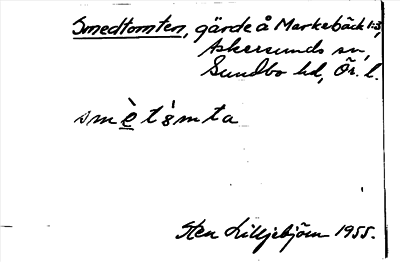 Smedtomten, gärde å Markebäck 1:3,
Askersunds sn,
Sundbo hd, Ör. l.
smè̲tómta
Sten Lilljebjörn 1955.